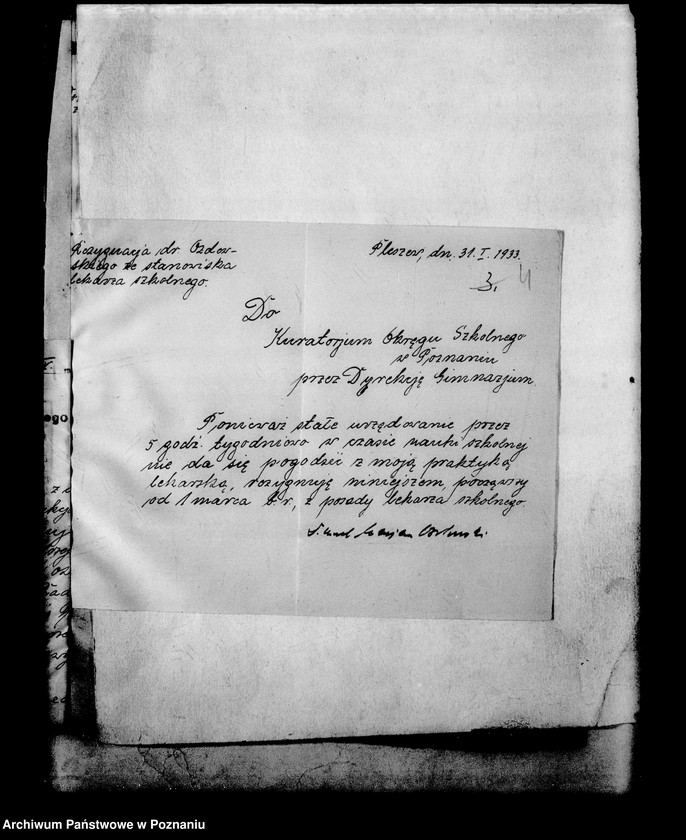 Rezygnacja dr. Ozdow-
skiego ze stanowiska
lekarza szkolnego.
Pleszew, dn. 31. I. 1933.
3. 4
Do
Kuratorjum Okręgu Szkolnego
w Poznaniu
przez Dyrekcję Gimnazjum.
Ponieważ stałe urzędowanie przez
5 godz. tygodniowo w czasie nauki szkolnej
nie da się pogodzić z moją praktyką
lekarską, rezygnuję niniejszem, począwszy
od 1 marca b. r., z posady lekarza szkolnego.
Marjan
ego
Archiwum Państwowe w Poznaniu